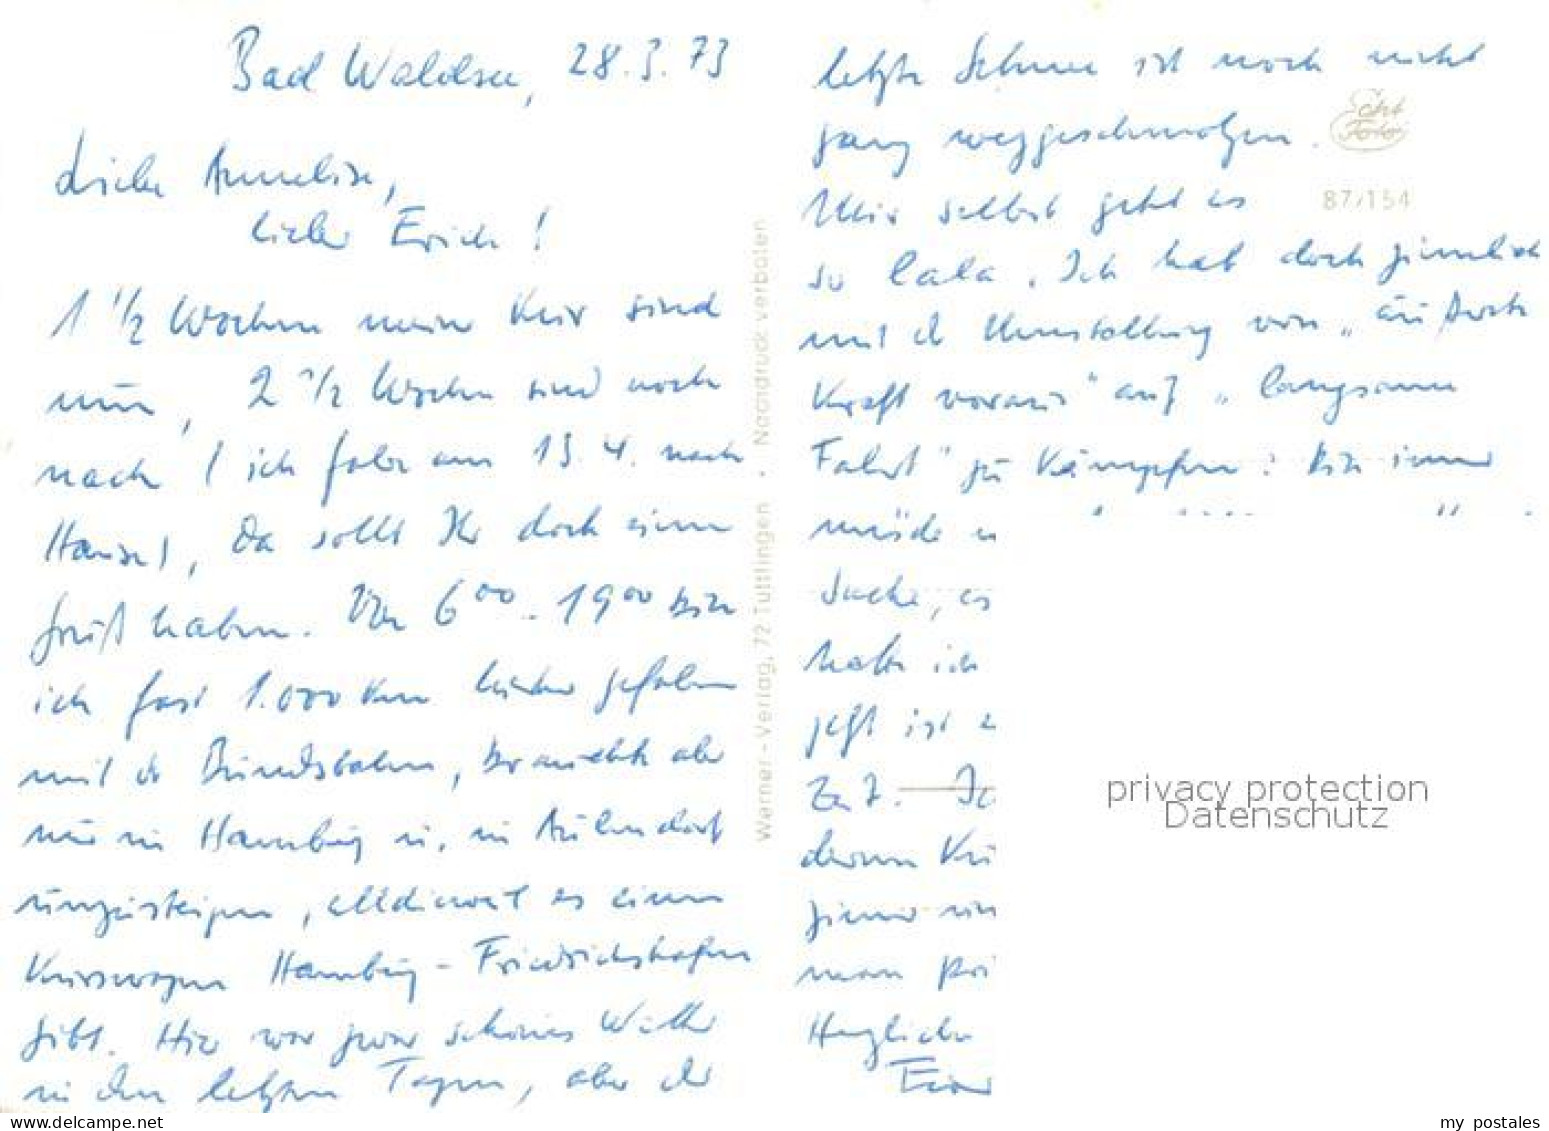 Bad Waldsee, 28.3.73
Liebe Anneliese,
lieber Erich!
1 1/2 Wochen meiner Kur sind
um, 2 1/2 Wochen sind noch
nach (ich fahre am 15.4. nach
Hause), da sollt Ihr doch einen
Gruß haben. Von 6⁰⁰ - 19⁰⁰ bin
ich fast 1.000 km hierher gefahren
mit der Bundesbahn, brauchte aber
nur in Hamburg u. in Aulendorf
umzusteigen, alldieweil es einen
Kurswagen Hamburg - Friedrichshafen
gibt. Hier war zwar schönes Wetter
in den letzten Tagen, aber der
Werner-Verlag, 72 Tuttlingen • Nachdruck verboten
letzte Schnee ist noch nicht
ganz weggeschmolzen.
Echt Foto
Mir selbst geht es
87/154
so lala. Ich hab doch ziemlich
mit d. Umstellung von „
Kraft voraus" auf „langsame
Fahrt" zu kämpfen! Bin immer
müde u
Sache, es
hatte ich
jetzt ist
Zeit. — Ic
deren Ku
man
Herzliche
privacy protection
Datenschutz
my_postales
www.delcampe.net